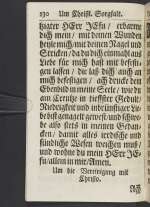 230 Um Christl. Sorgfalt.
ligster HErr JEsu / erbarme
dich mein / mit deinen Wunden
heyle mich / mit deinen Nägel und
Stricken / da du dich einmahl aus
Liebe für mich hast mit befesti-
gen lassen / du laß dich auch an
mich befestigen / ach drucke dein
Ebenbild in meine Seele / wie du
am Creutze in tieffster Gedult /
Niedrigkeit und inbrünstiger Lie-
be bist genagelt gewest / und schwe-
be also stets in meinen Gedan-
cken / damit alles irrdische und
sündliche Wesen weichen muß /
und wohne du mein HErr JE-
su / allein in mir / Amen.
Um die Vereinigung mit
Christo.
Ach